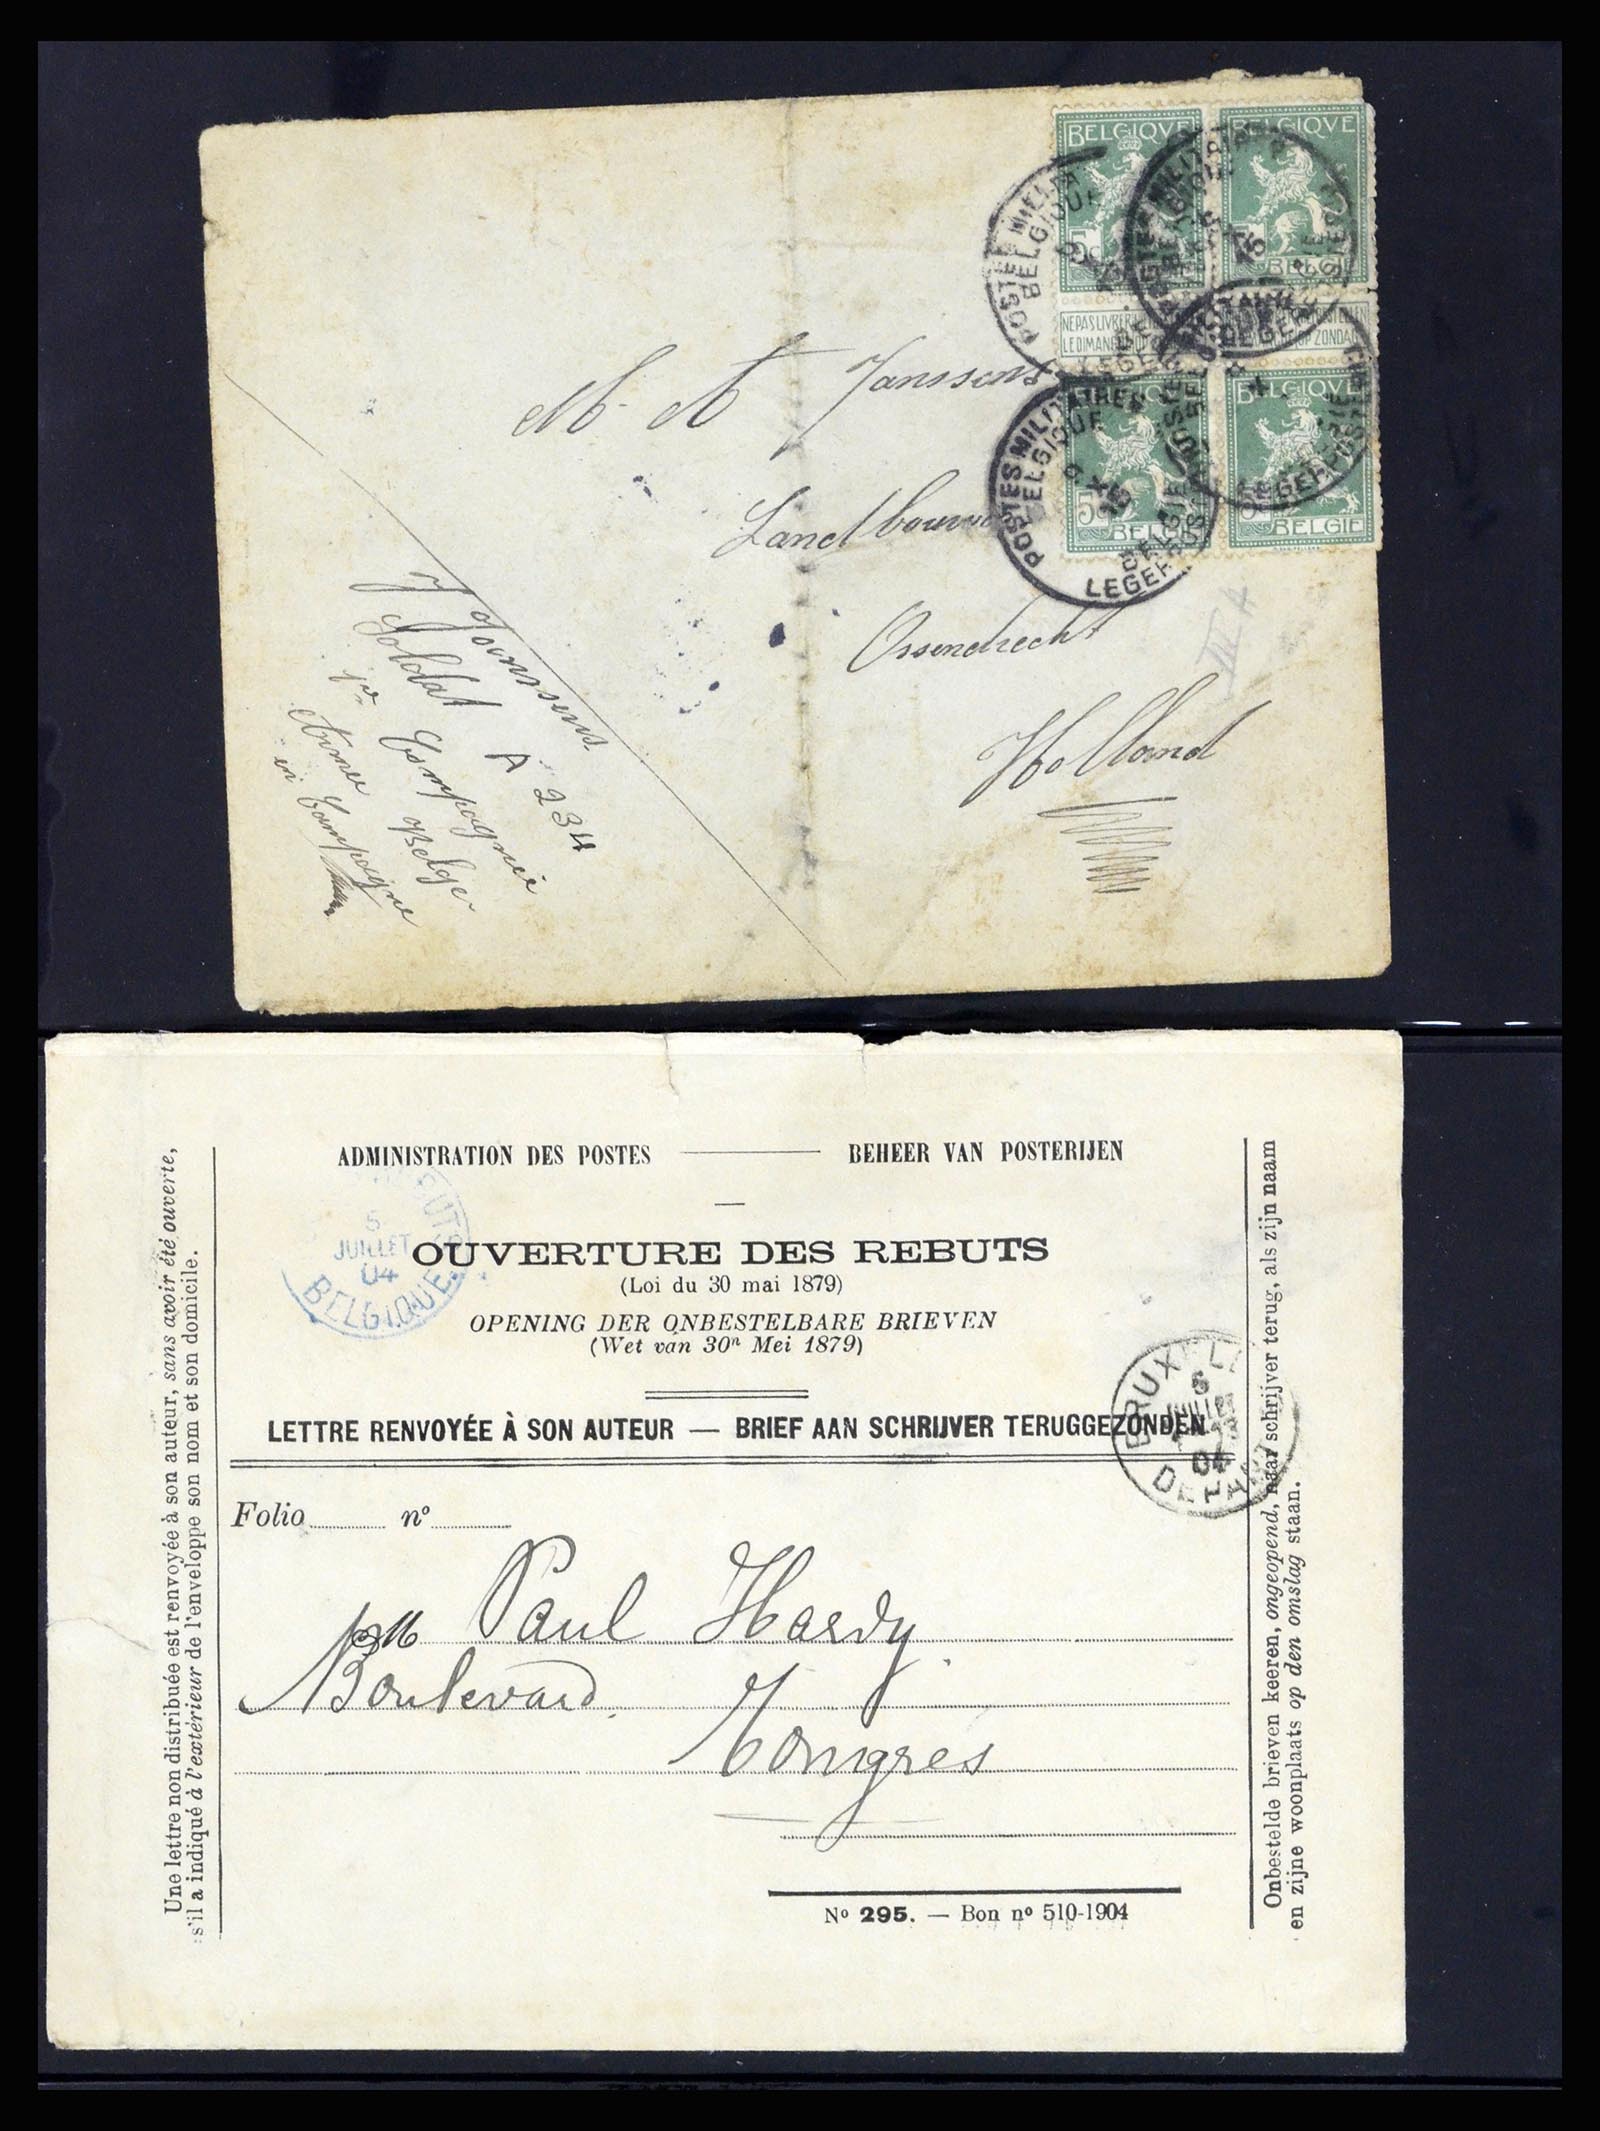 BELGIQUE BELGIQUE
5c
BELGIE BELGIE
NE PAS LIVRER
LE DIMANCHE OP ZONDAG
BELGIQUE BELGIQUE
5c
BELGIE BELGIE
POSTES MILITAIRES
BELGIQUE
9 X
BELGIE
LEGERPOSTERIJ
M. A Janssens
Ossendrecht
Holland
III A
J Janssens
Soldat A 234
1re Compagnie
Armée Belge
en Campagne
ADMINISTRATION DES POSTES — BEHEER VAN POSTERIJEN
5
JUILLET
04
BELGIQUE
OUVERTURE DES REBUTS
(Loi du 30 mai 1879)
OPENING DER ONBESTELBARE BRIEVEN
(Wet van 30n Mei 1879)
LETTRE RENVOYÉE À SON AUTEUR — BRIEF AAN SCHRIJVER TERUGGEZONDEN.
BRUXELLES
JUILLET
04
DEPART
Folio n°
Paul Hardy
Boulevard
Tongres
N° 295. — Bon n° 510-1904
Une lettre non distribuée est renvoyée à son auteur, sans avoir été ouverte,
s'il a indiqué à l'extérieur de l'enveloppe son nom et son domicile.
Onbestelde brieven keeren, ongeopend, naar schrijver terug, als zijn naam
en zijne woonplaats op den omslag staan.